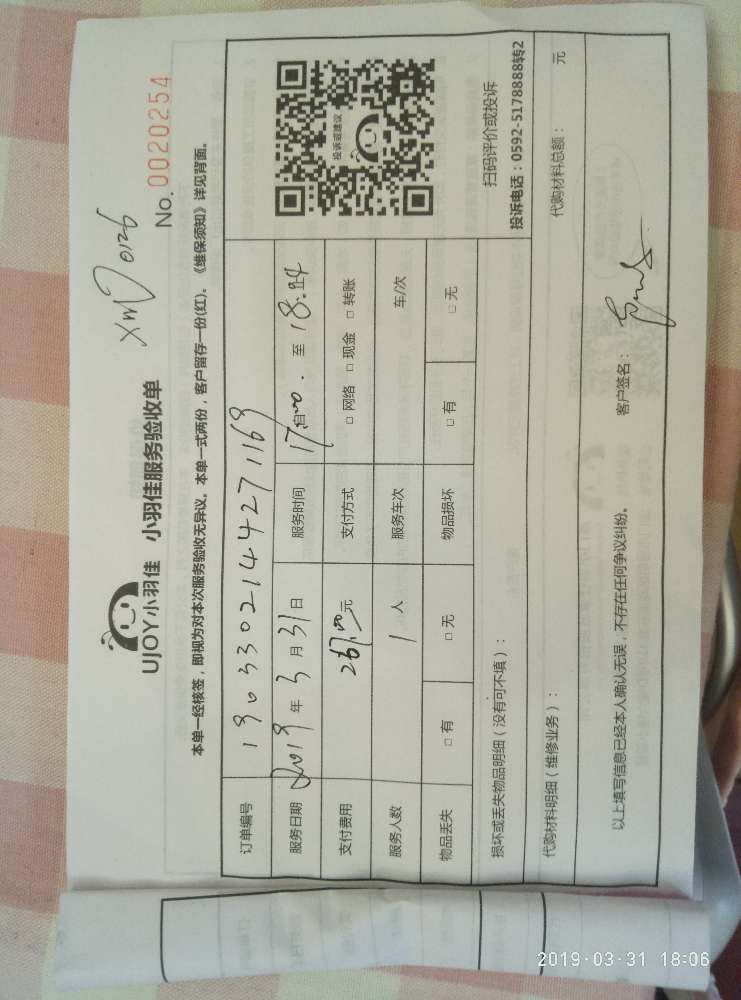 XM 0126
No. 0020254
UJOY小羽佳 小羽佳服务验收单
本单一经核签，即视为对本次服务验收无异议。本单一式两份，客户留存一份(红)。《维保须知》详见背面。
订单编号 190330214427169
服务日期 2019 年 3 月 31 日 服务时间 17 自 00 . 至 18:24 止
支付费用 267.00 元 支付方式 □ 网络 □ 现金 □ 转账
服务人数 1 人 服务车次 车/次
物品丢失 □ 有 □ 无 物品损坏 □ 有 □ 无
投诉或建议
扫码评价或投诉
投诉电话：0592-5178888转2
损坏或丢失物品明细（没有可不填）：
代购材料明细（维修业务）： 代购材料总额： 元
以上填写信息已经本人确认无误，不存在任何争议纠纷。 客户签名：
2019·03·31 18:06